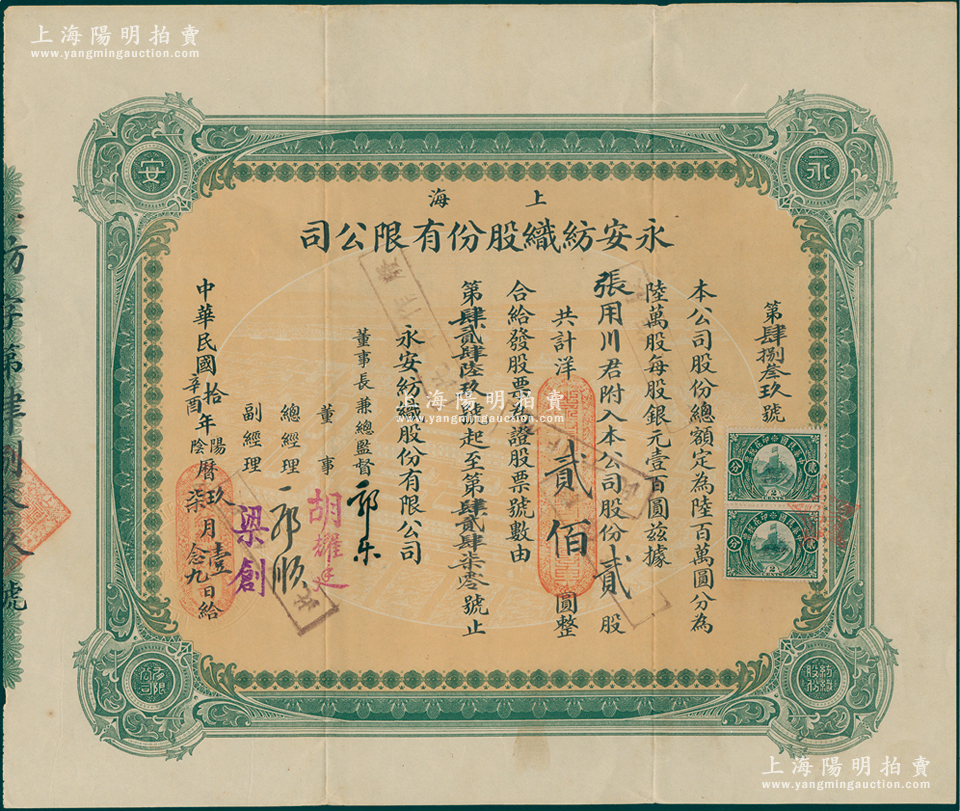 上海陽明拍賣
www.yangmingauction.com
永
安
海 上
司公限有份股織紡安永
第肆捌叁玖號
本公司股份總額定為陸百萬圓分為
陸萬股每股銀元壹百圓茲據
張用川君附入本公司股份貳股
共計洋貳佰圓整
合給發股票為證股票號數由
第肆貳肆陸玖號起至第肆貳肆柒零號止
永安紡織股份有限公司
董事長兼總監督 郭樂
董事 胡耀廷
總經理 郭順
副經理 梁創
中華民國拾年陽曆玖月壹日給
辛酉 陰 柒 念九
上海陽明拍賣
www.yangmingauction.com
2
2
紡織股份
有限公司
上海陽明拍賣
www.yangmingauction.com